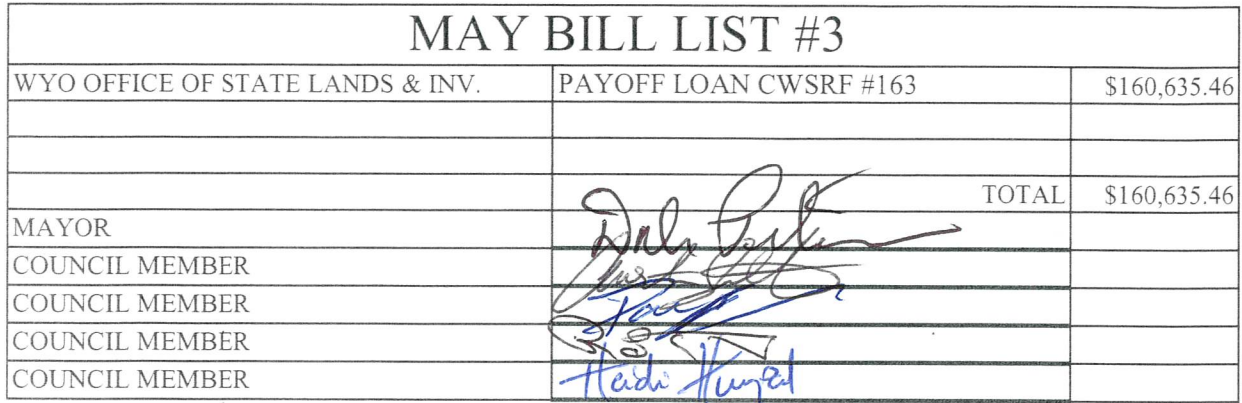 MAY BILL LIST #3
WYO OFFICE OF STATE LANDS & INV. PAYOFF LOAN CWSRF #163 $160,635.46
TOTAL $160,635.46
MAYOR
COUNCIL MEMBER
COUNCIL MEMBER
COUNCIL MEMBER
COUNCIL MEMBER Heidi